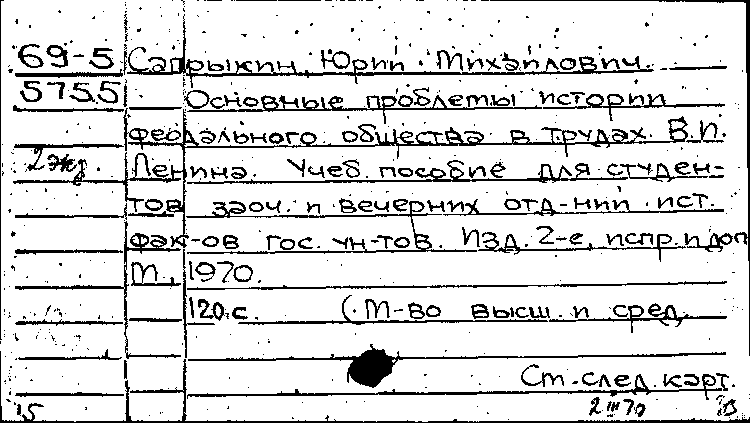 69-5 Сапрыкин, Юрий Михайлович.
5755 Основные проблемы истории
феодального общества в трудах В.И.
2 экз. Ленина. Учеб. пособие для студен-
тов заоч. и вечерних отд-ний ист.
фак-ов гос. ун-тов. Изд. 2-е, испр. и доп
М., 1970.
120 с. (М-во высш. и сред.
См. след. карт.
2 III 70